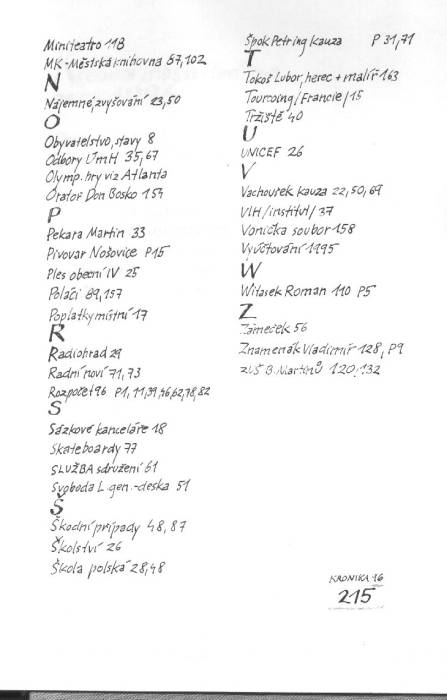 Miniteatro 118
MK-Městská knihovna 57,102
N
Nájemné,zvyšování 23,50
O
Obyvatelstvo,stavy 8
Odbory ÚmH 35,67
Olymp.hry viz Atlanta
Orator Don Bosko 154
P
Pekara Martin 33
Pivovar Nošovice P15
Ples obecní IV 25
Poláci 89,157
Poplatky místní 17
R
Radiohrad 29
Radní noví 71,73
Rozpočet 96 P1, 11,39,46,62,78,82
S
Sázkové kanceláře 18
Skateboardy 77
SLUŽBA sdružení 61
Svoboda L.gen.-deska 51
Š
Škodní případy 48,87
Školství 26
Škola polská 28,48
Špok Petr ing kauza P 31,71
T
Tokoš Lubor, herec + malíř 163
Tourcoing/Francie/15
Tržiště 40
U
UNICEF 26
V
Vachourek kauza 22,50,69
VIH/institut/37
Vonička soubor 158
Vyúčtování 1995
W
Witasek Roman 110 P5
Z
Zámeček 56
Znamenák Vladimír 128, P9
ZUŠ B.Martinů 120,132
KRONIKA 16
215